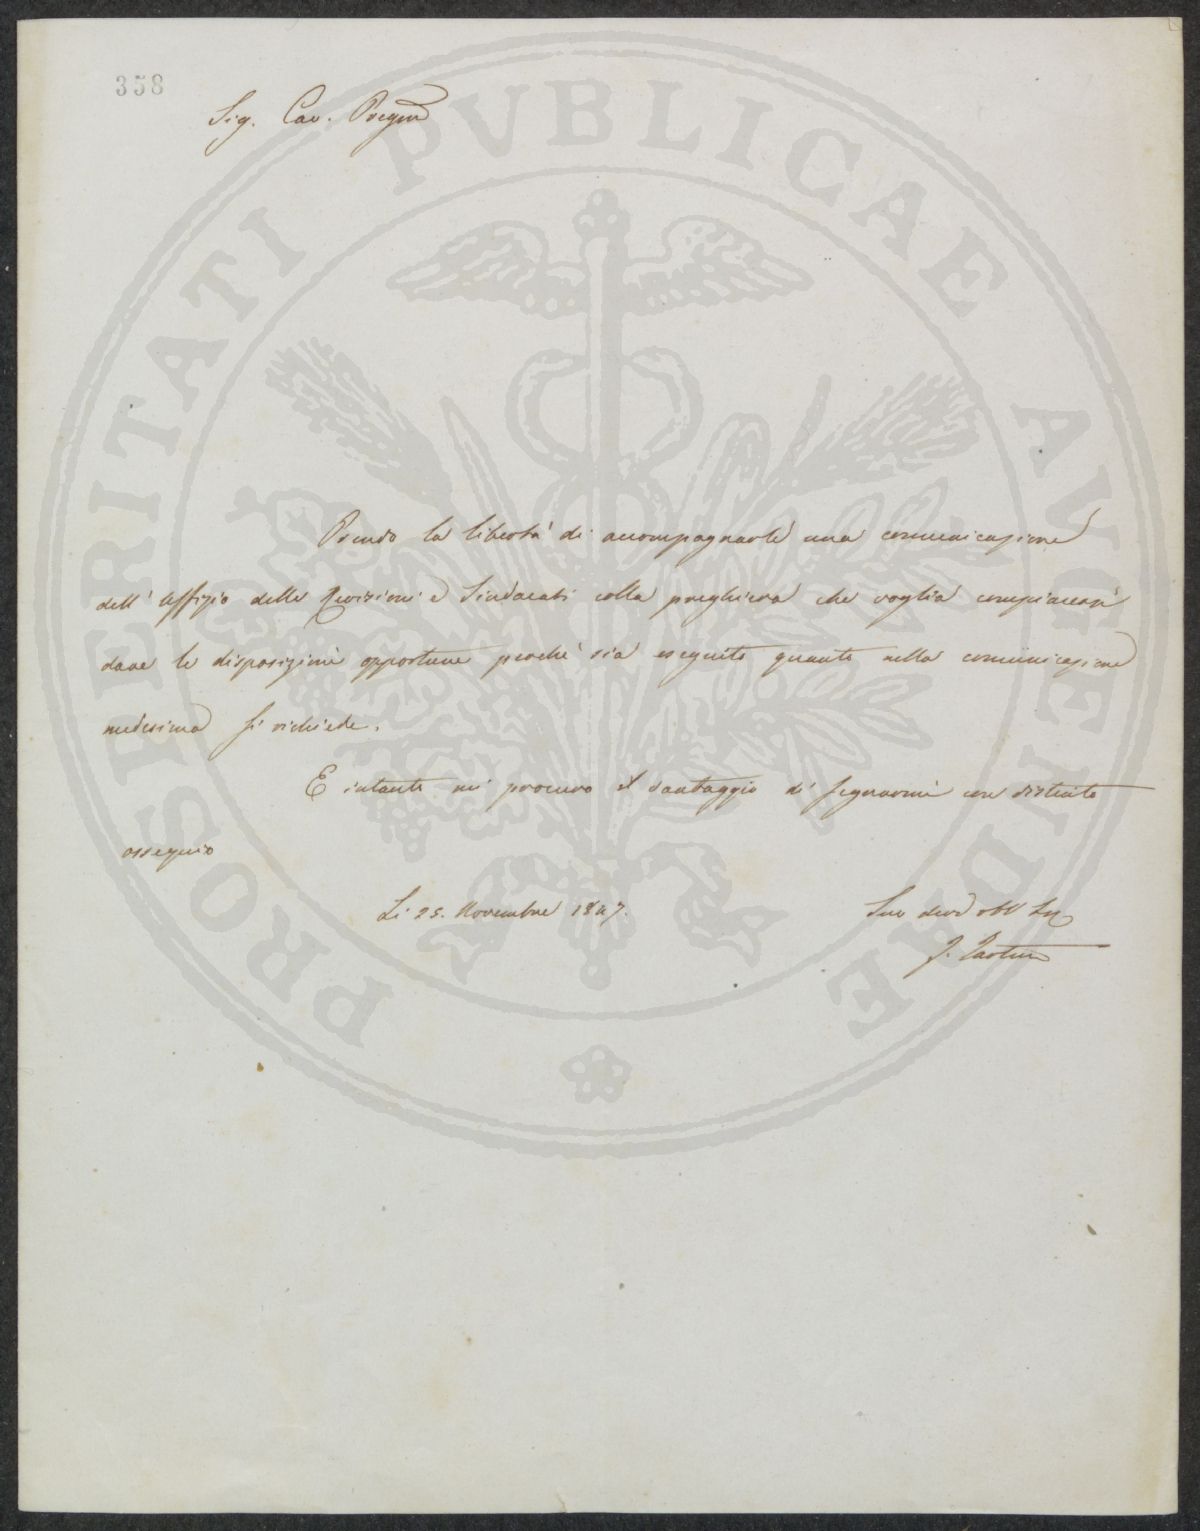 358
Sig. Cav. Pregmo
Prendo la libertà di accompagnarle una comunicazione
dell' Uffizio delle Revisioni e Sindacati colla preghiera che voglia compiacersi
dare le disposizioni opportune perchè sia eseguito quanto nella comunicazione
medesima si richiede.
E intanto mi procuro il vantaggio di segnarmi con distinto
ossequio
Li 25. Novembre 1847.
Suo devo obbo
PROSPERITATI PVBLICAE AVGENDAE